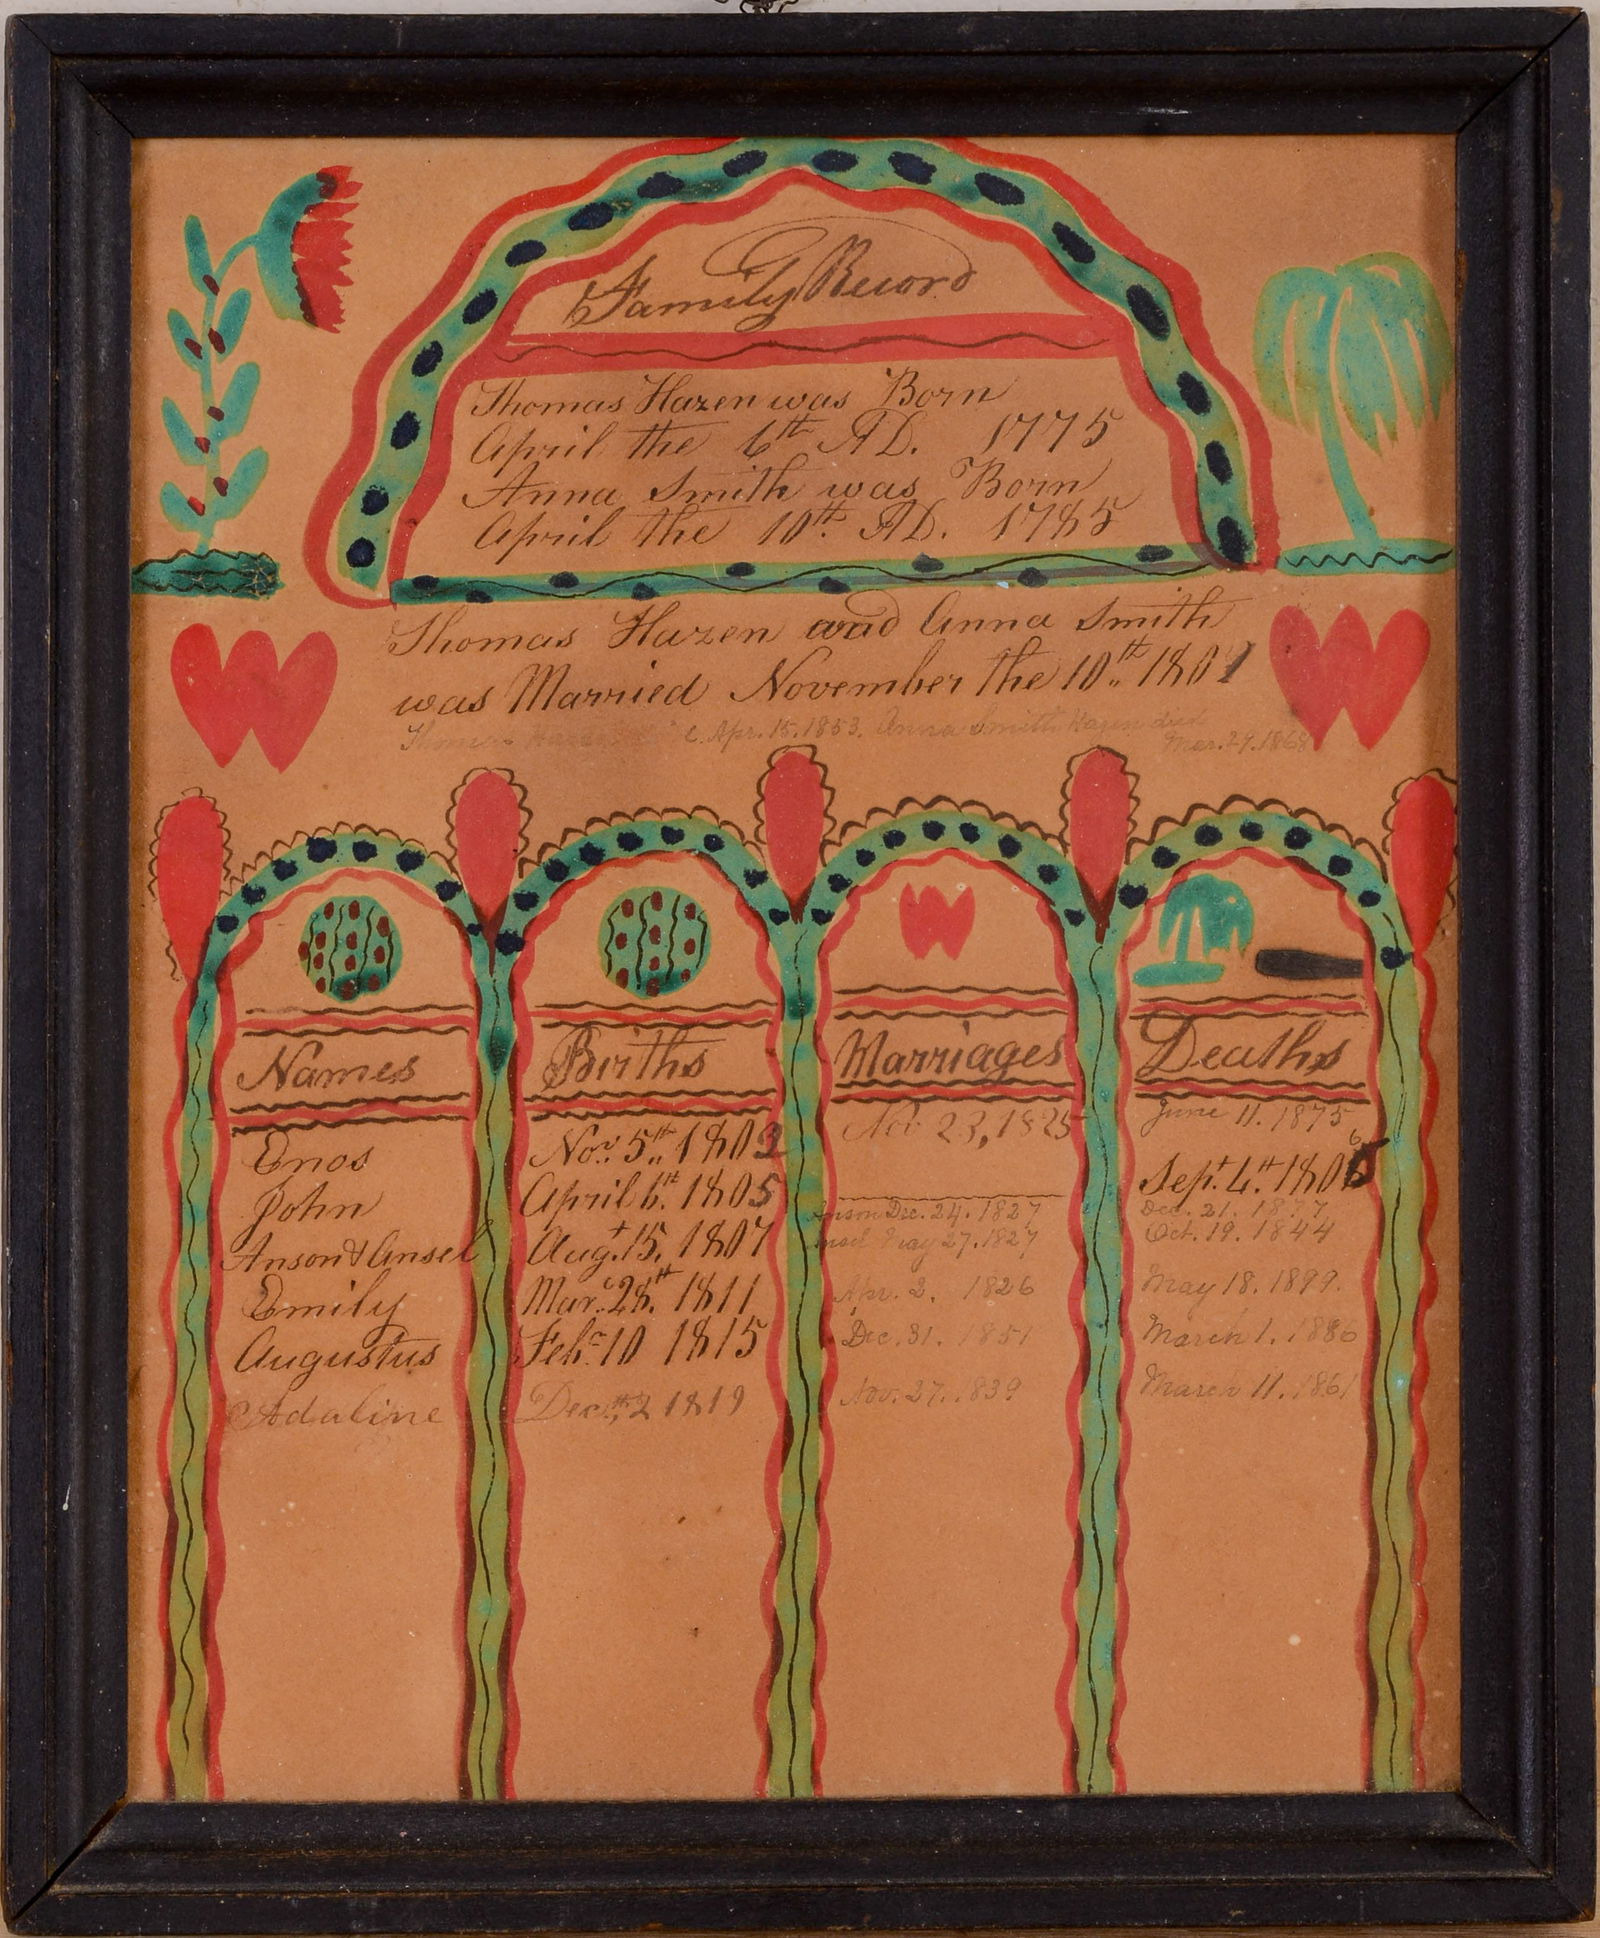 Family Record
Thomas Hazen was Born
April the 6th AD. 1775
Anna Smith was Born
April the 10th AD. 1785
Thomas Hazen and Anna Smith
was Married November the 10th 1801
Thomas Apr. 15. 1853. Anna Smith Hazen died
Mar. 29. 1868
Names Births Marriages Deaths
Enos Nov. 5th 1803 Nov 23, 1825 June 11. 1875
John April 6th 1805 Sept. 4th 1806
Anson & Ansel Augt 15. 1807 Anson Dec. 24. 1827 Dec. 21. 1877
Ansel May 27. 1827 Oct. 19. 1844
Emily Marc 28th 1811 Apr. 2. 1826 May 18. 1899.
Augustus Feb 10 1815 Dec. 31. 1851 March 1. 1886
Adaline Dec 2 1819 Nov. 27. 1839 March 11. 1861